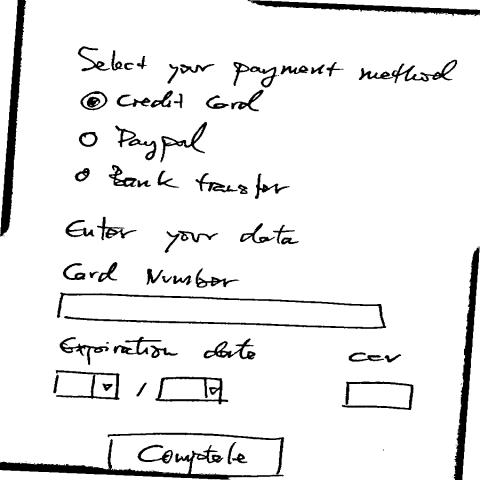 Select your payment method
Credit Card
Paypal
Bank transfer
Enter your data
Card Number
Expiration date ccv
/
Complete